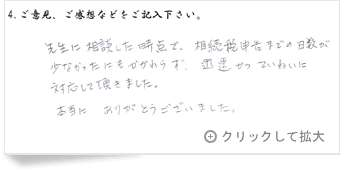 4.ご意見、ご感想などをご記入下さい。
先生に相談した時点で、相続税申告までの日数が
少なかったにもかかわらず、迅速かつていねいに
対応して頂きました。
本当に ありがとうございました。
クリックして拡大